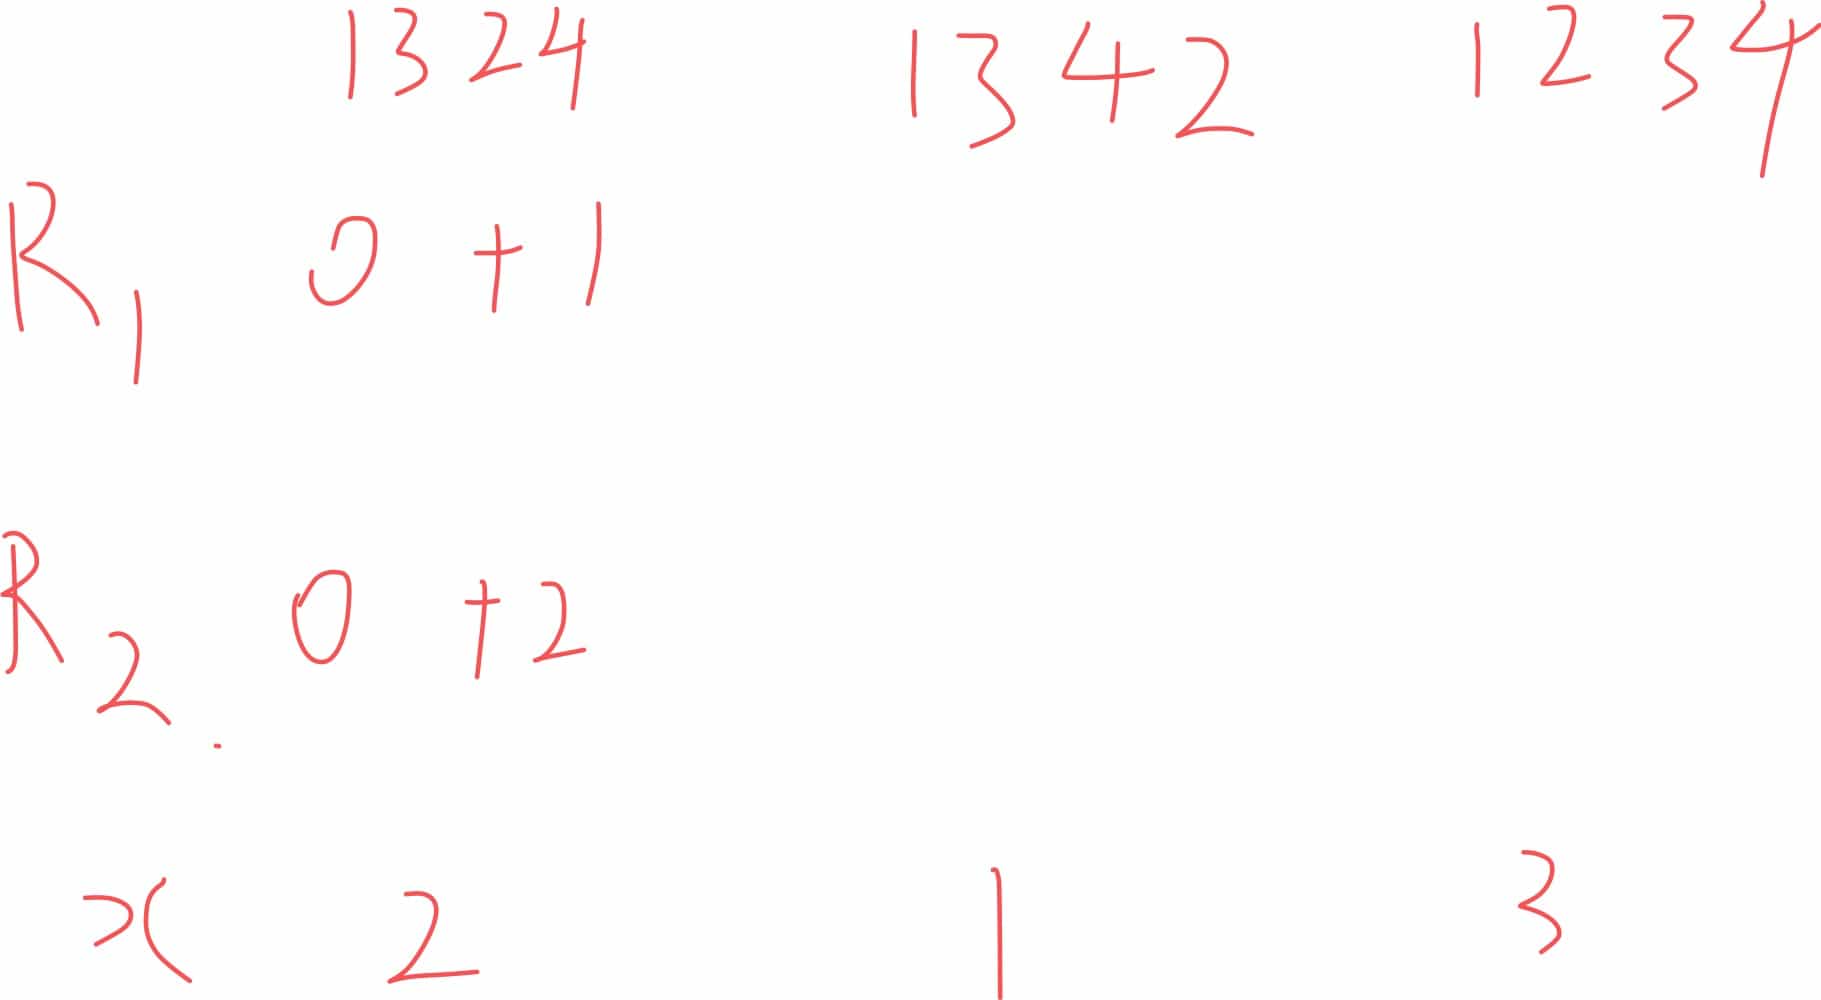 1324 1342 1234
R1 0 +1
R2. 0 +2
x 2 1 3